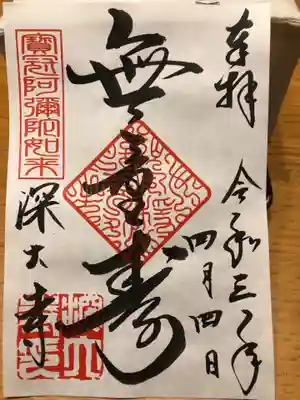 奉拝
令和三年
四月四日
無量寿
寶冠阿彌陀如来
深大寺